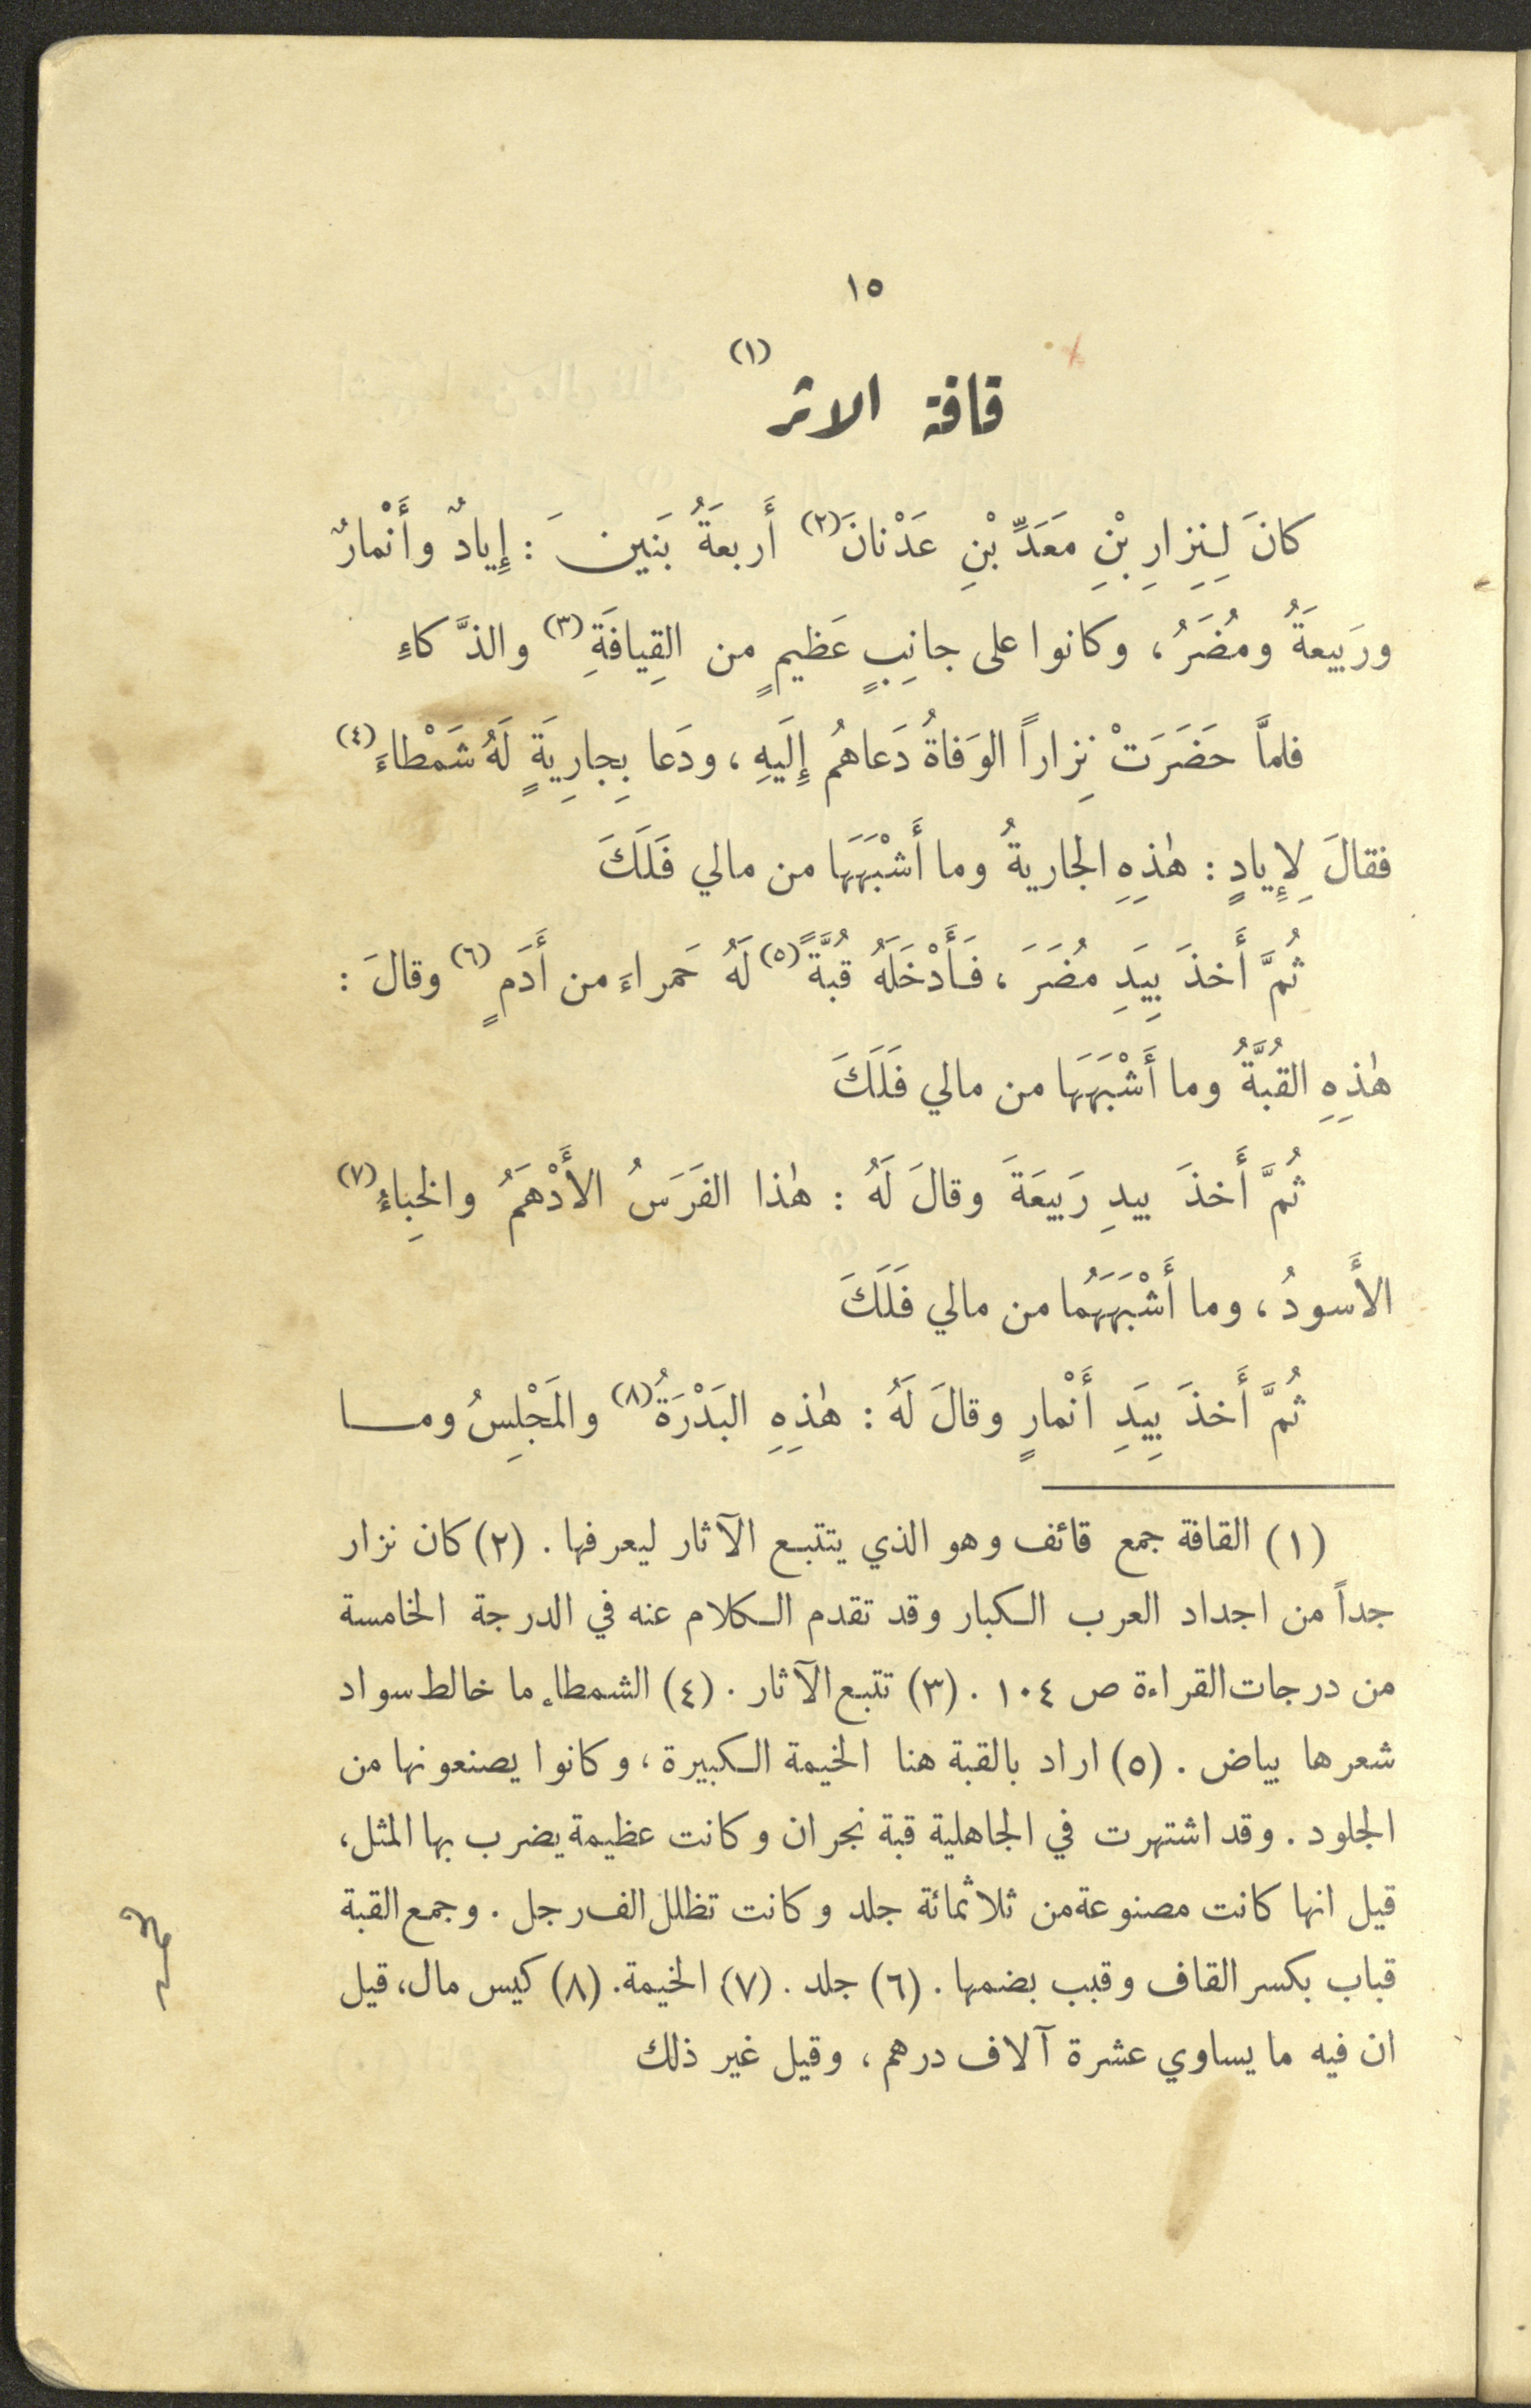 ١٥
قافة الاثر (١)
كانَ لِنِزارِ بْنِ مَعَدِّ بْنِ عَدْنانَ (٢) أَربعَةُ بَنين َ : إِيادٌ وأَنْمارٌ
ورَبيعَةُ ومُضَرُ ، وكانوا على جانِبٍ عَظيمٍ من القِيافَةِ (٣) والذَّكاءِ
فلمَّا حَضَرَتْ نِزاراً الوَفاةُ دَعاهُم إِلَيهِ ، ودَعا بِجارِيَةٍ لَهُ شَمْطاءَ (٤)
فقالَ لِإِيادٍ : هٰذِهِ الجاريةُ وما أَشْبَهَهَا من مالي فَلَكَ
ثُمَّ أَخذَ بِيَدِ مُضَرَ ، فَأَدْخَلَهُ قُبَّةً (٥) لَهُ حَمراءَ من أَدَمٍ (٦) وقالَ :
هٰذِهِ القُبَّةُ وما أَشْبَهَهَا من مالي فَلَكَ
ثُمَّ أَخذَ بيدِ رَبيعَةَ وقالَ لَهُ : هٰذا الفَرَسُ الأَدْهَمُ والخِباءُ (٧)
الأَسودُ ، وما أَشْبَهَهُما من مالي فَلَكَ
ثُمَّ أَخذَ بِيَدِ أَنْمارٍ وقالَ لَهُ : هٰذِهِ البَدْرَةُ (٨) والمَجْلِسُ ومـــا
(١) القافة جمع قائف وهو الذي يتتبع الآثار ليعرفها . (٢) كان نزار
جداً من اجداد العرب الكبار وقد تقدم الكلام عنه في الدرجة الخامسة
من درجات القراءة ص ١٠٤ . (٣) تتبع الآثار . (٤) الشمطاء ما خالط سواد
شعرها بياض . (٥) اراد بالقبة هنا الخيمة الكبيرة ، وكانوا يصنعونها من
الجلود . وقد اشتهرت في الجاهلية قبة نجران وكانت عظيمة يضرب بها المثل ،
قيل انها كانت مصنوعة من ثلاثمائة جلد وكانت تظلل الف رجل . وجمع القبة
قباب بكسر القاف وقبب بضمها . (٦) جلد . (٧) الخيمة . (٨) كيس مال ، قيل
ان فيه ما يساوي عشرة آلاف درهم ، وقيل غير ذلك